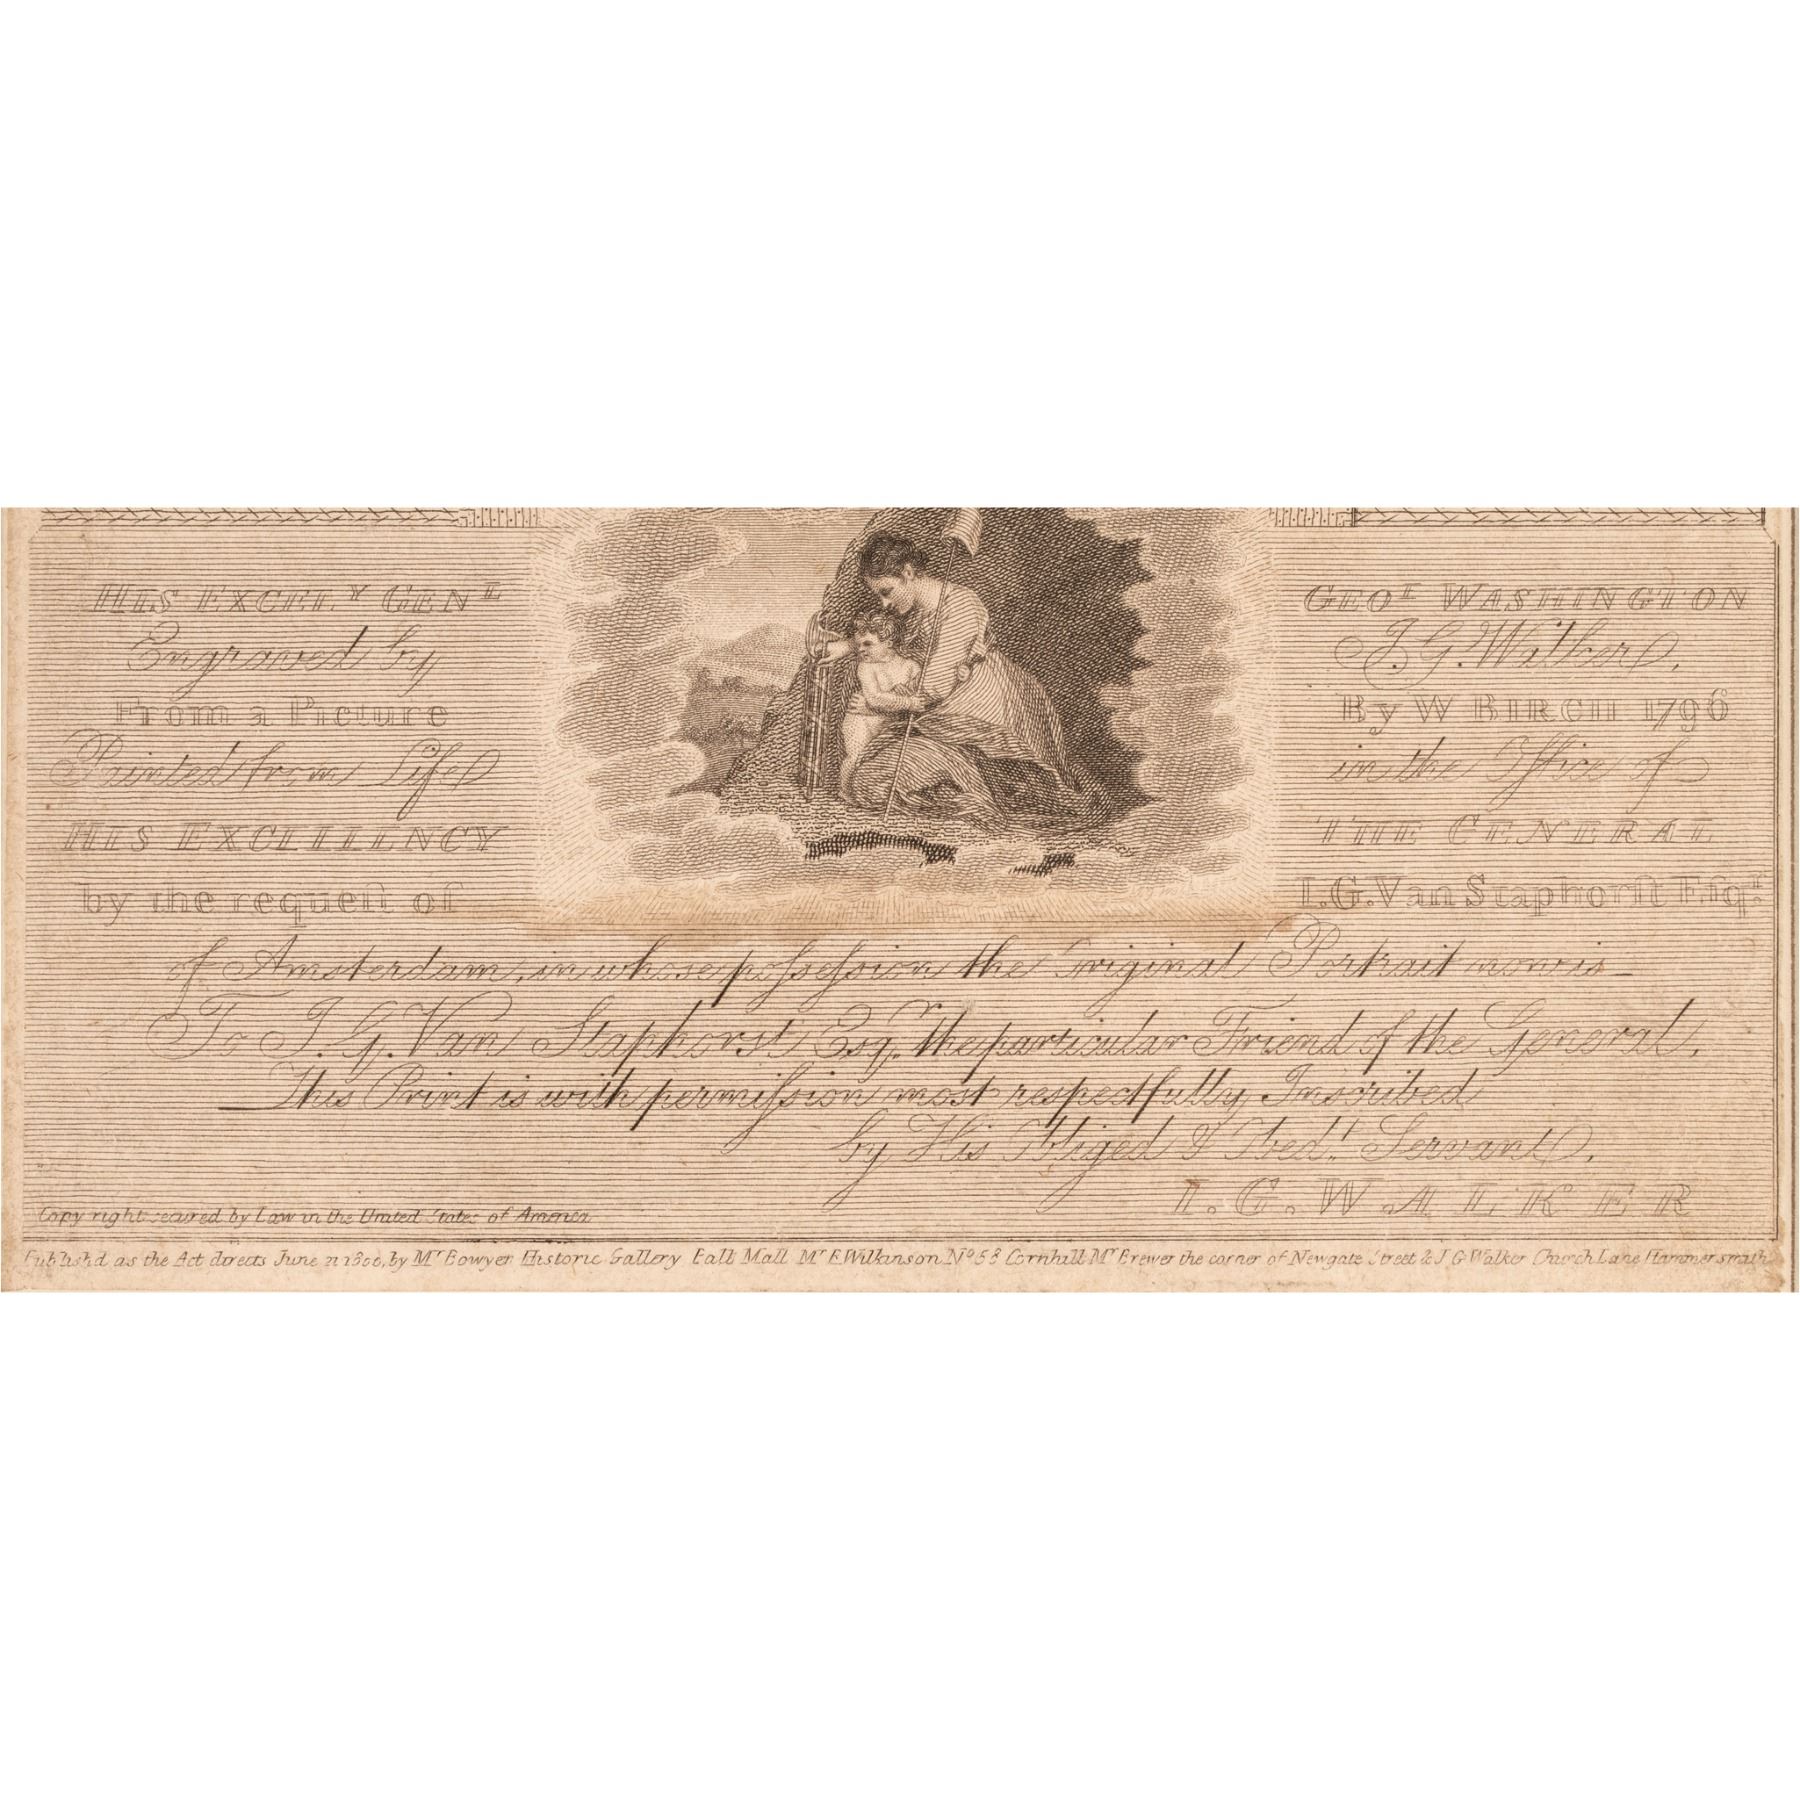 HIS EXCEL.Y GENL GEOE WASHINGTON
Engraved by J. G. Walker,
From a Picture By W BIRCH 1796
Painted from Life in the Office of
HIS EXCELLENCY THE GENERAL
by the requeſt of I.G.Van Staphorſt Eſqr.
of Amsterdam, in whose poſseſsion the Original Portrait now is
To J. G. Van Staphorst Esqr. the particular Friend of the General,
This Print is with permiſsion most respectfully Inscribed
by His Obliged & Obedt. Servant,
I. G. WALKER
Copy right secured by Law in the United States of America
Publish'd as the Act directs June 21 1800, by Mr Bowyer Historic Gallery Pall Mall Mr E Wilkinson No 58 Cornhill Mr Brewer the corner of Newgate Street & J G Walker Church Lane Hammersmith